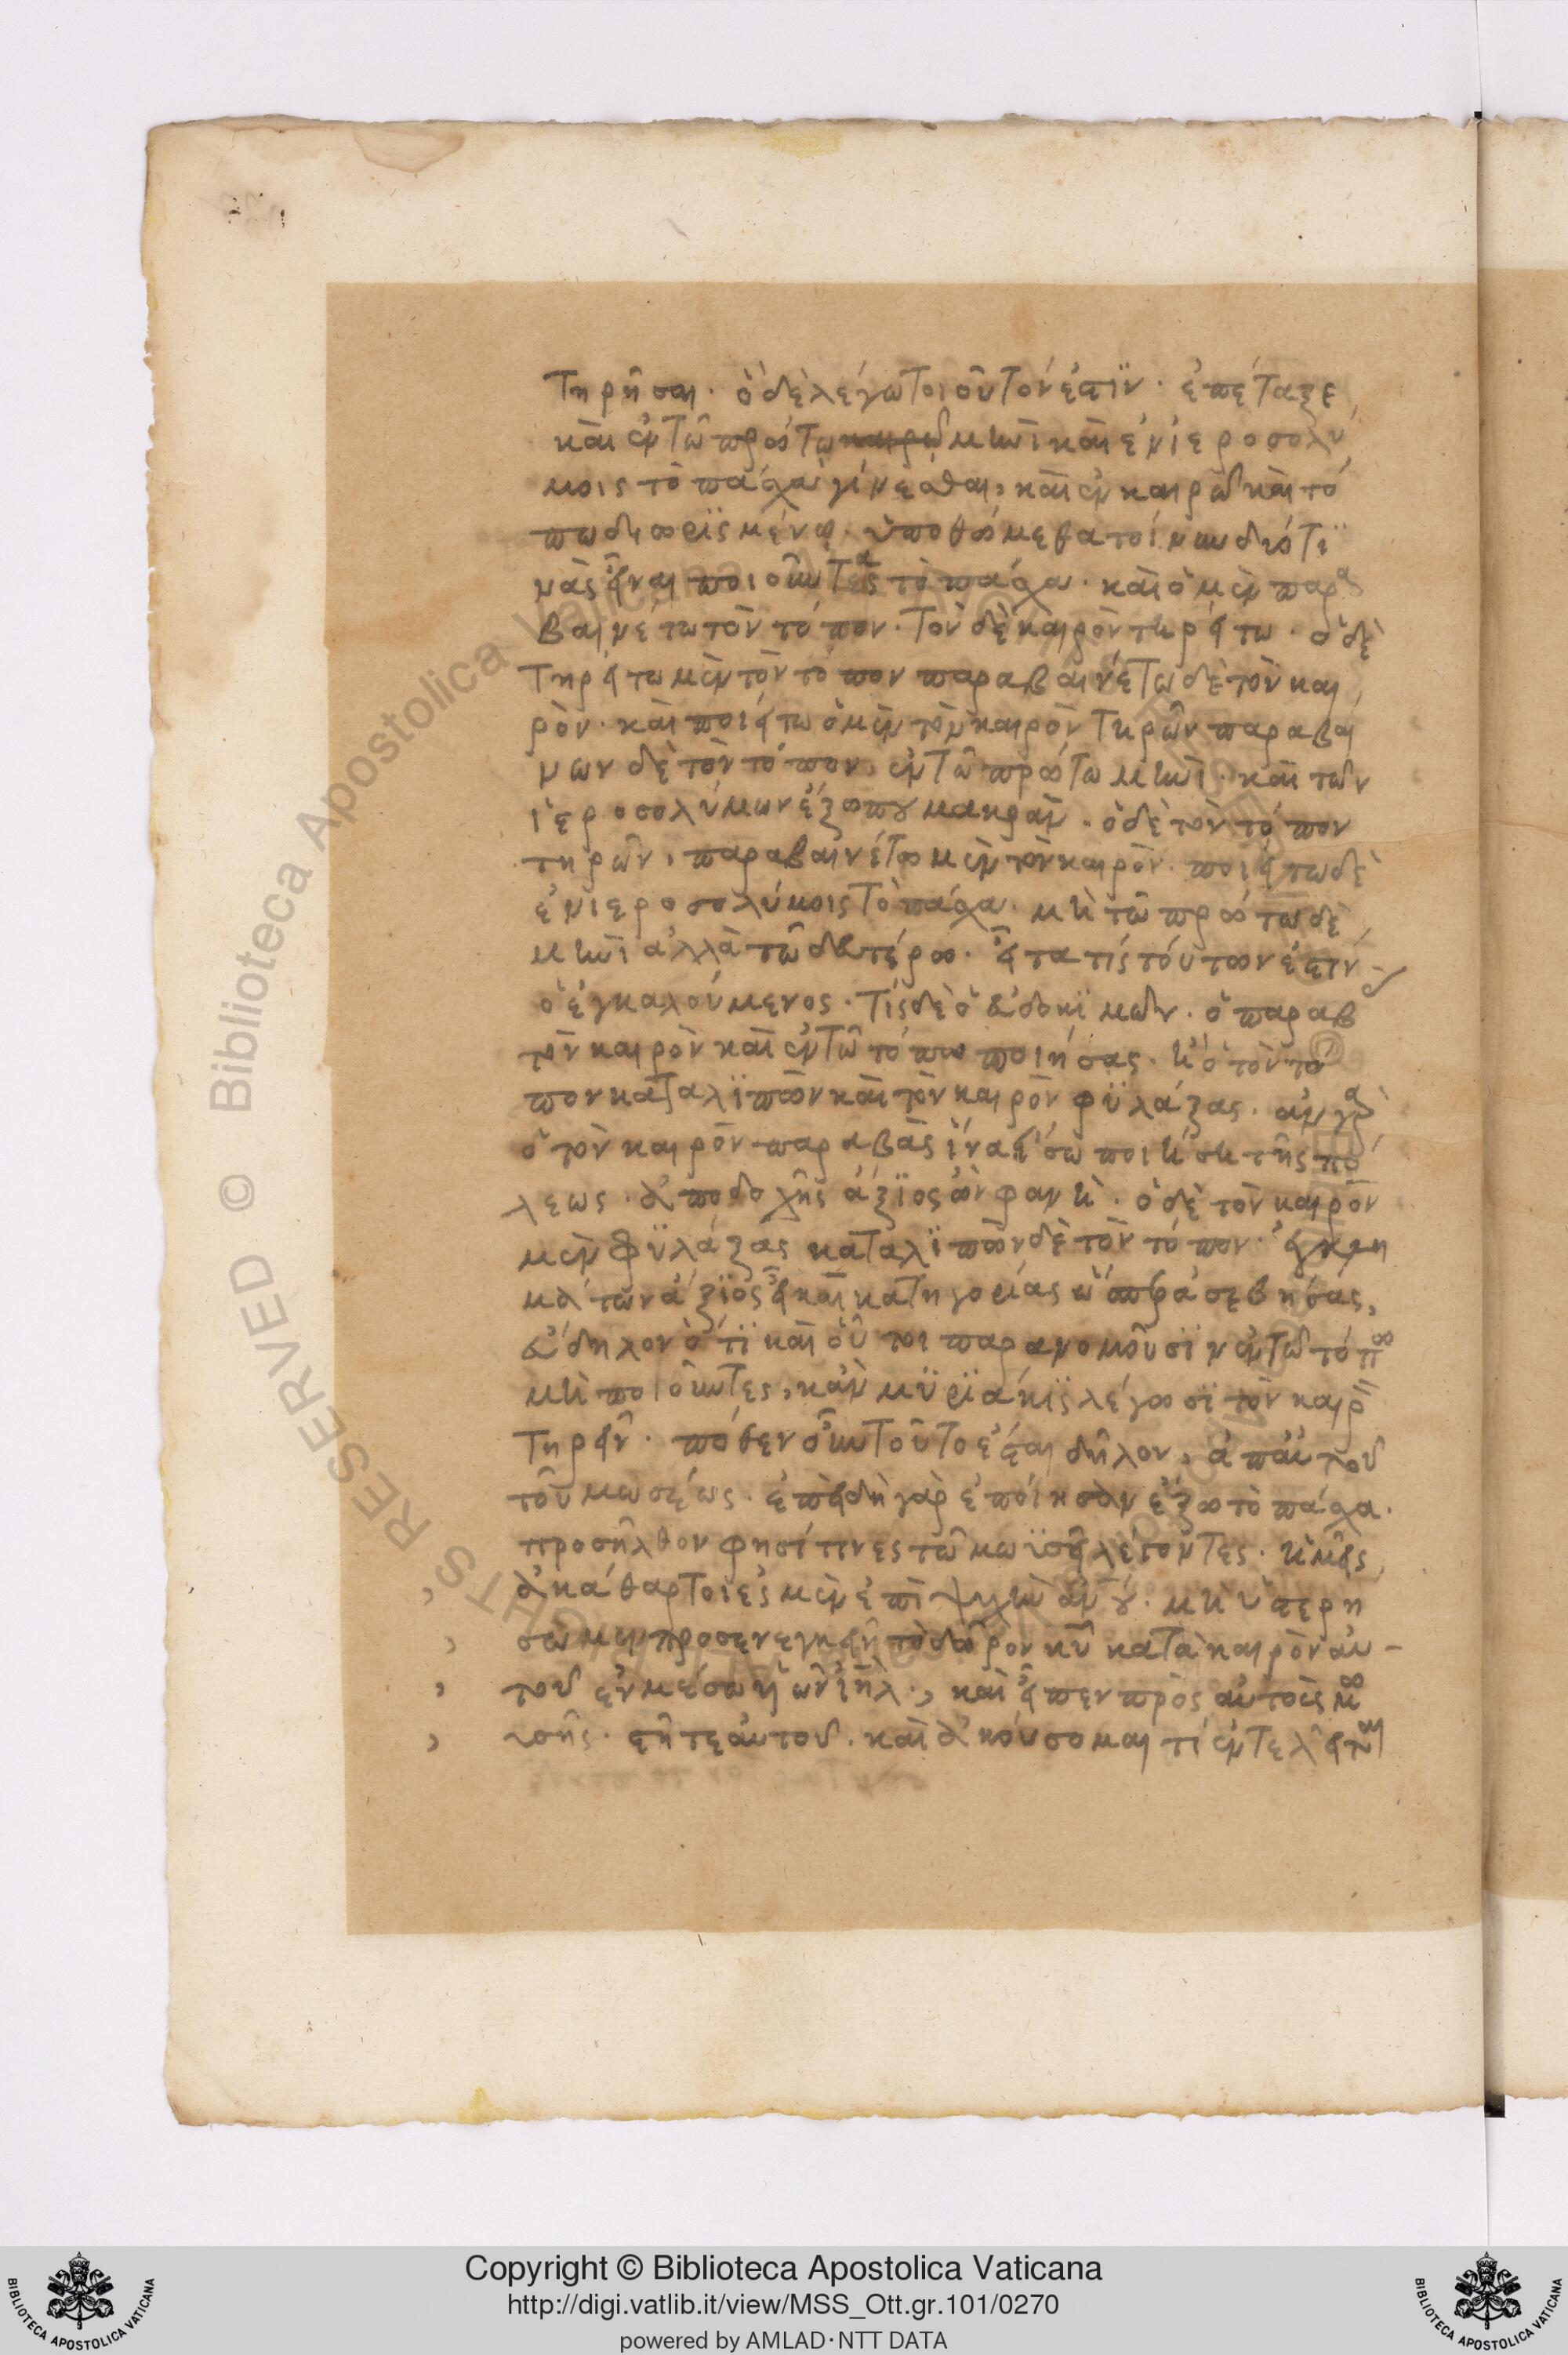 τηρῆσαι· ὃ δὲ λέγω τοιοῦτόν ἐστϊν· ἐπέταξε
καὶ ἐν τῶ πρώτω μηνὶ καὶ ἐν ἱεροσολύ
μοις τὸ πάσχα γίνεσθαι, καὶ ἐν καιρῶ καὶ τό
πω διωρϊσμένω· ὑποθώμεθα τοίνυν δύο τϊ
νὰς εἶναι ποιοῦντας τὸ πάσχα· καὶ ὁ μὲν παρα
βαινέτω τὸν τόπον· τὸν δὲ καιρὸν τηρείτω· ὁ δὲ
τηρείτω μὲν τὸν τόπον παραβαινέτω δὲ τὸν και
ρόν· καὶ ποιείτω ὁ μὲν τὸν καιρὸν τηρῶν παραβαί
νων δὲ τὸν τόπον, ἐν τῶ πρώτω μηνὶ· καὶ τῶν
ἱεροσολύμων ἔξω που μακρὰν· ὁ δὲ τὸν τόπον
τηρῶν, παραβαινέτω μὲν τὸν καιρὸν· ποιείτω δὲ
ἐν ἱεροσολύμοις τὸ πάσχα· μὴ τῶ πρώτω δὲ
μηνὶ ἀλλὰ τῶ δευτέρω· εἶτα τίς τούτων ἐστὶν
ὁ ἐγκαλούμενος· τίς δὲ ὁ εὐδοκϊμῶν· ὁ παραβ
τὸν καιρὸν καὶ ἐν τῶ τόπω ποιήσας· ἢ ὁ τὸν τό
πον καταλϊπὼν καὶ τὸν καιρὸν φϋλάξας· ἂν γὰρ
ὁ τὸν καιρὸν παραβὰς ἵνα εἴσω ποιήση τῆς πό
λεως· ἀποδοχῆς ἄξϊος ὢν φανῆ· ὁ δὲ τὸν καιρὸν
μὲν φϋλάξας καταλϊπὼν δὲ τὸν τόπον· ἐγκλη
μάτων ἄξϊος εἶ καὶ κατηγορίας ὡσπερ ἀσεβήσας,
εὔδηλον ὅτϊ καὶ οὗτοι παρανομοῦσϊν ἐν τῶ τόπω
μὴ ποιοῦντες, κἂν μϋρϊάκϊς λέγωσϊ τὸν καιρὸν
τηρεῖν· πόθεν οὖν τοῦτο ἔσται δῆλον, ἀπ αὐτοῦ
τοῦ μωσέως· ἐπειδὴ γὰρ ἐποίησαν ἔξω τὸ πάσχα·
προσῆλθον φησί τινες τῶ μωϊσεῖ λέγοντες· ἡμεῖς
ἀκάθαρτοι ἐσμὲν ἐπὶ ψυχῆ ἀνου· μὴ ὑστερή
σωμεν προσενεγκεῖν τὸ δῶρον κυ κατὰ καιρὸν αὐ-
τοῦ ἐν μέσω υἱῶν ιηλ·, καὶ εἶπεν πρὸς αὐτοὺς μω
ϋσῆς· στῆτε αὐτοῦ· καὶ ἀκούσομαι τί ἐντελεῖται